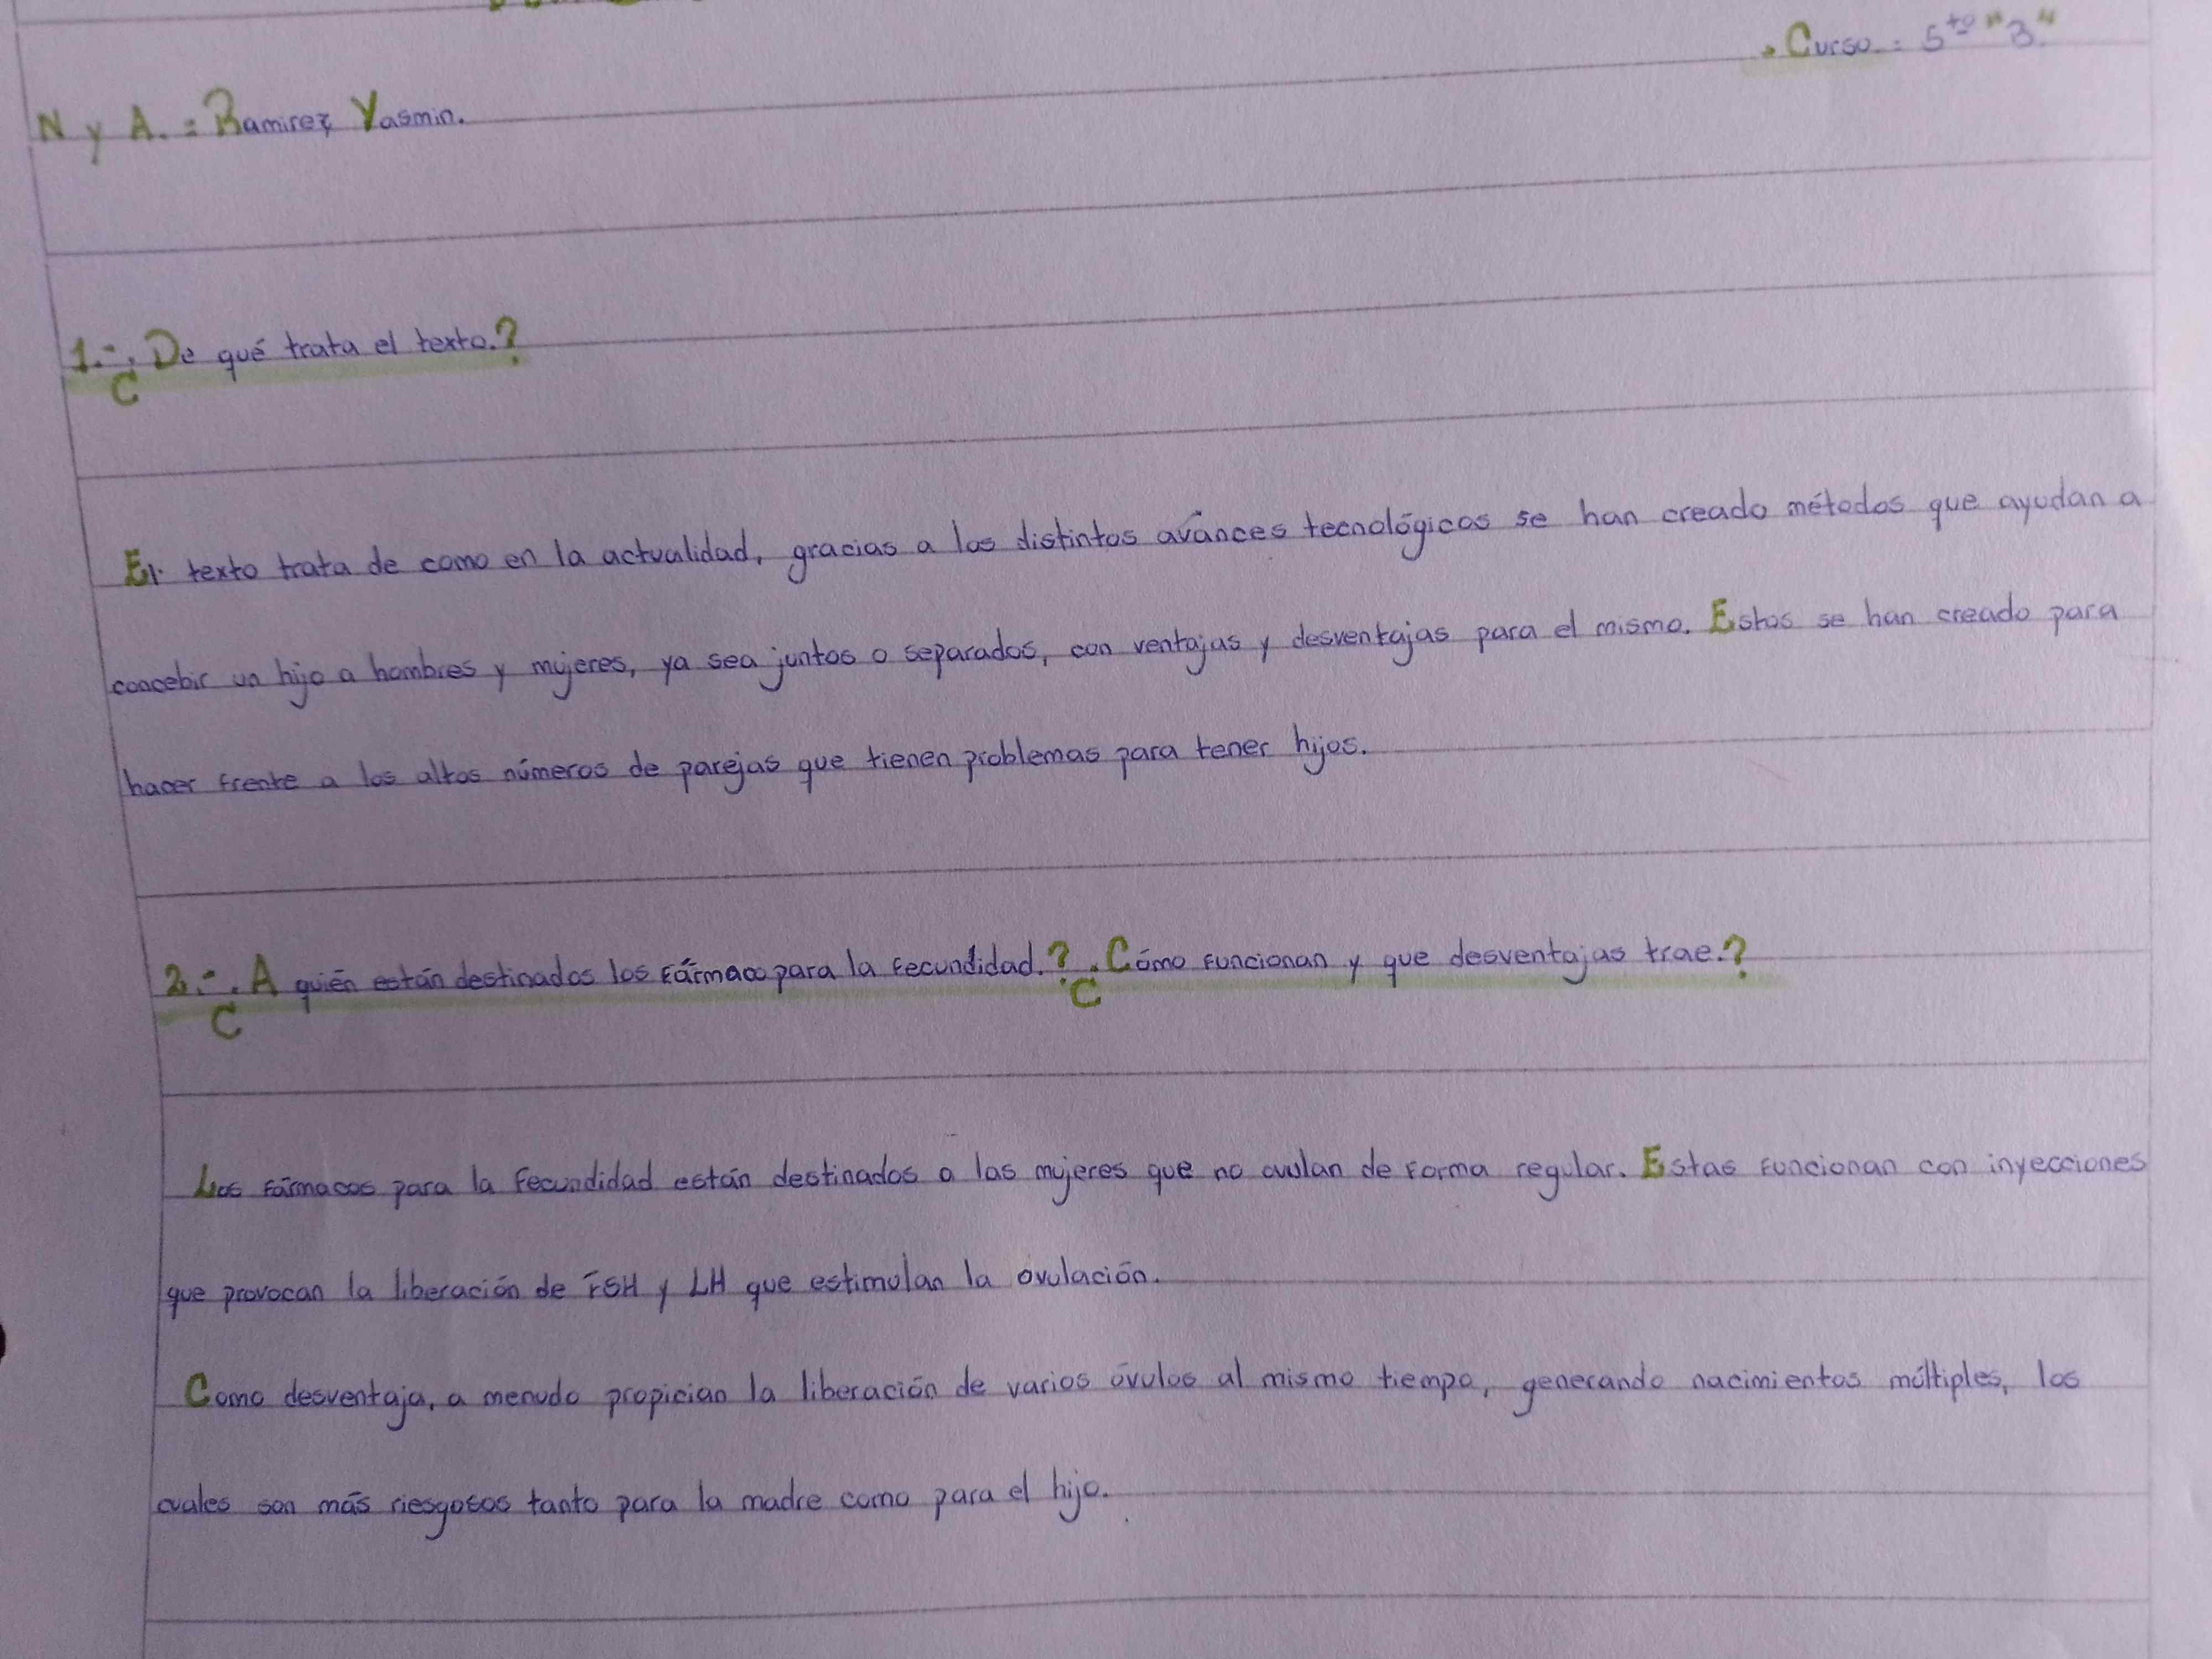 Curso.: 5to "3"
N y A.: Ramirez Yasmin.
1.- ¿De qué trata el texto.?
El texto trata de como en la actualidad, gracias a los distintos avances tecnológicos se han creado métodos que ayudan a
concebir un hijo a hombres y mujeres, ya sea juntos o separados, con ventajas y desventajas para el mismo. Estos se han creado para
hacer frente a los altos números de parejas que tienen problemas para tener hijos.
2.- ¿A quién están destinados los fármaco para la fecundidad.? ¿Cómo funcionan y que desventajas trae.?
Los fármacos para la fecundidad están destinados a las mujeres que no ovulan de forma regular. Estas funcionan con inyecciones
que provocan la liberación de FSH y LH que estimulan la ovulación.
Como desventaja, a menudo propician la liberación de varios óvulos al mismo tiempo, generando nacimientos múltiples, los
cuales son más riesgosos tanto para la madre como para el hijo.